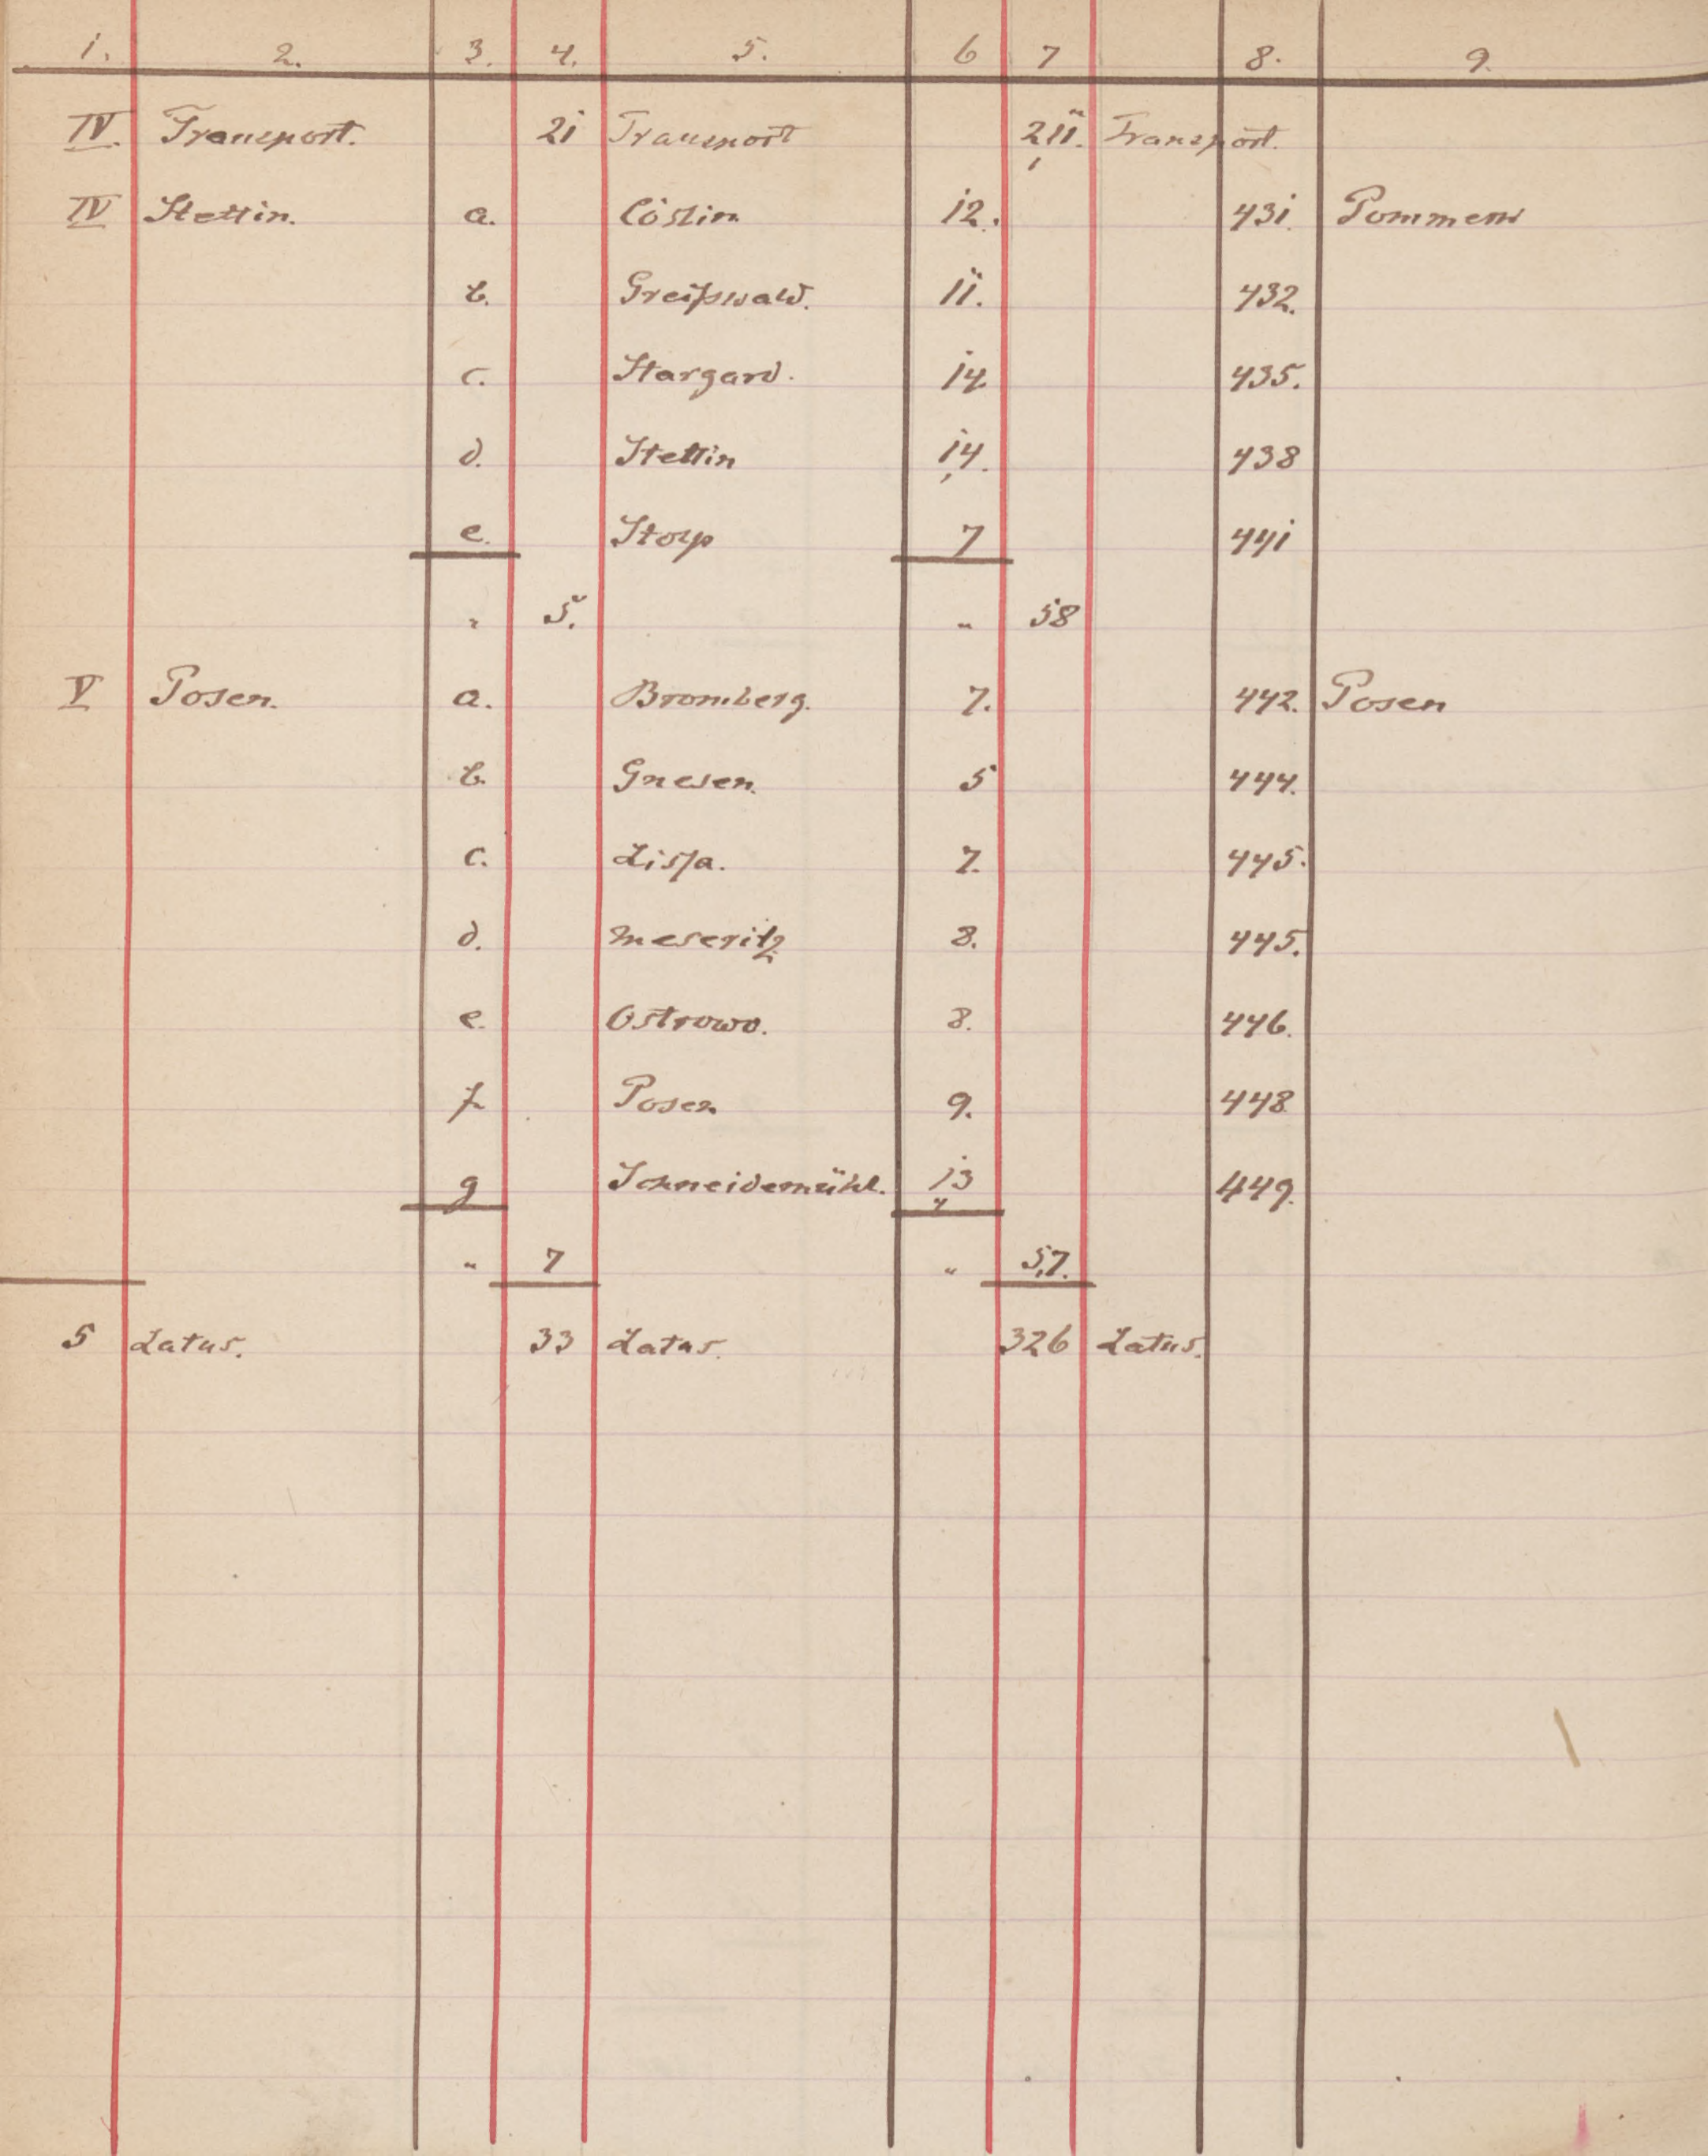 1. 2. 3. 4. 5. 6 7 8. 9.
IV. Transport. 21 Transport 211. Transport.
IV Stettin. a. Cöslin 12. 431. Pommern
b. Greifswald. 11. 432.
c. Stargard. 14 435.
d. Stettin 14. 438
e. Stolp 7 441
" 5. " 58
V Posen. a. Bromberg. 7. 442. Posen
b. Gnesen. 5 444.
c. Lissa. 7. 445.
d. Meseritz 8. 445.
e. Ostrowo. 8. 446.
f. Posen 9. 448
g Schneidemühl. 13 449.
" 7 " 57.
5 Latus. 33 Latus. 326 Latus.